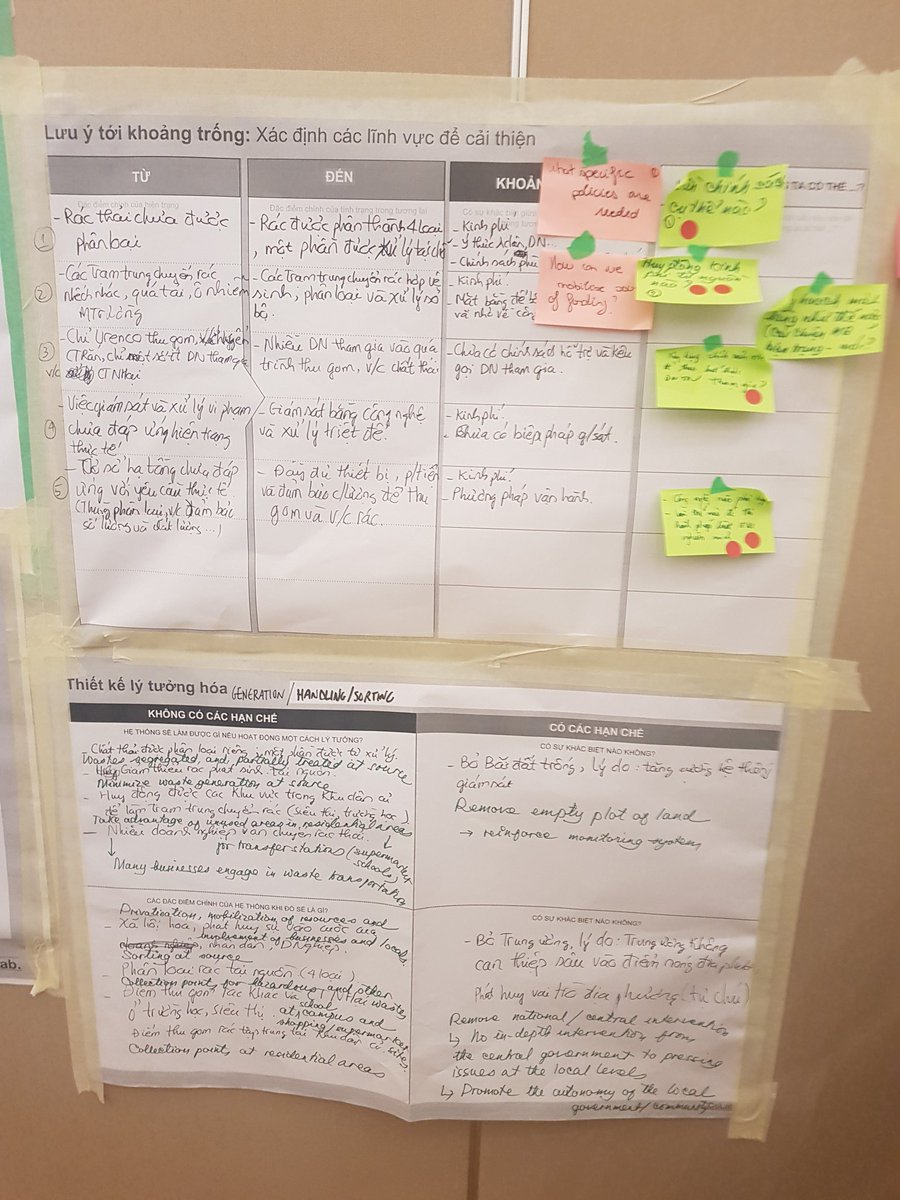 Lưu ý tới khoảng trống: Xác định các lĩnh vực để cải thiện
TỪ
ĐẾN
KHOẢN
TA CÓ THỂ...?
Đặc điểm chính của hiện trạng
Đặc điểm chính của tình trạng trong tương lai
Có sự khác biệt giữa
①
- Rác thải chưa được
phân loại
- Rác được phân thành 4 loại,
một phần được xử lý tái chế
- Kinh phí
- Ý thức DN...
- Chính sách
②
- Các Trạm trung chuyển rác
nhếch nhác, quá tải, ô nhiễm
MTg lòng
- Các Trạm trung chuyển rác hợp vệ
sinh, phân loại và xử lý sơ
bộ.
- Kinh phí
- Mặt bằng để
và nhỏ về
③
- Chỉ Urenco thu gom,
CTRắn, chỉ một số ít DN tham gia
v/c CTNHại
- Nhiều DN tham gia vào quá
trình thu gom, v/c chất thải
- Chưa có chính sách hỗ trợ và kêu
gọi DN tham gia.
④
- Việc giám sát và xử lý vi phạm
chưa đáp ứng hiện trạng
thực tế
- Giám sát bằng công nghệ
và xử lý triệt để.
- Kinh phí.
- Chưa có biện pháp g/sát.
⑤
- Cơ sở hạ tầng chưa đáp
ứng với yêu cầu thực tế.
(Thùng phân loại, v/c đảm bảo
số lượng và chất lượng...)
- Đầy đủ thiết bị, p/tiện
và đảm bảo c/lượng để thu
gom và v/c rác.
- Kinh phí
- Phương pháp vận hành.
What specific
policies are
needed
chính sách
cụ thể nào?
How can we
mobilise
of funding?
Huy động kinh
phí từ nguồn
nào?
Thiết kế lý tưởng hóa GENERATION/HANDLING/SORTING
KHÔNG CÓ CÁC HẠN CHẾ
HỆ THỐNG SẼ LÀM ĐƯỢC GÌ NẾU HOẠT ĐỘNG MỘT CÁCH LÝ TƯỞNG?
- Chất thải được phân loại riêng, một phần được tự xử lý.
Wastes segregated, and partially treated at source
- Giảm thiểu rác phát sinh tại nguồn.
Minimize waste generation at source
- Huy động được các khu vực trong khu dân cư
để làm trạm trung chuyển rác (siêu thị, trường học)
Take advantage of unused areas in residential areas
for transfer stations (supermarket
schools)
- Nhiều doanh nghiệp vận chuyển rác thải.
↓
Many businesses engage in waste transportation
CÓ CÁC HẠN CHẾ
CÓ SỰ KHÁC BIỆT NÀO KHÔNG?
- Bỏ Bãi đất trống, lý do: tăng cường hệ thống
giám sát
Remove empty plot of land
→ reinforce monitoring system
CÁC ĐẶC ĐIỂM CHÍNH CỦA HỆ THỐNG KHI ĐÓ SẼ LÀ GÌ?
Privatization, mobilization of resources and
- Xã hội hóa, phát huy sự vào cuộc của
involvement of businesses and locals.
nhân dân, DNghiệp.
Sorting at source
- Phân loại rác tại nguồn (4 loại)
Collection point for hazardous and other wastes
- Điểm thu gom rác khác và TNHại
ở trường học, siêu thị. at school campus and
shopping/supermarket sites
Điểm thu gom rác tập trung tại khu dân cư.
Collection points at residential areas
CÓ SỰ KHÁC BIỆT NÀO KHÔNG?
- Bỏ Trung ương, lý do: Trung ương không
can thiệp sâu vào điểm nóng địa phương
Phát huy vai trò địa phương (tự chủ)
Remove national/central intervention
↳ No in-depth intervention from
the central government to pressing
issues at the local levels
↳ Promote the autonomy of the local
government/community
ab.